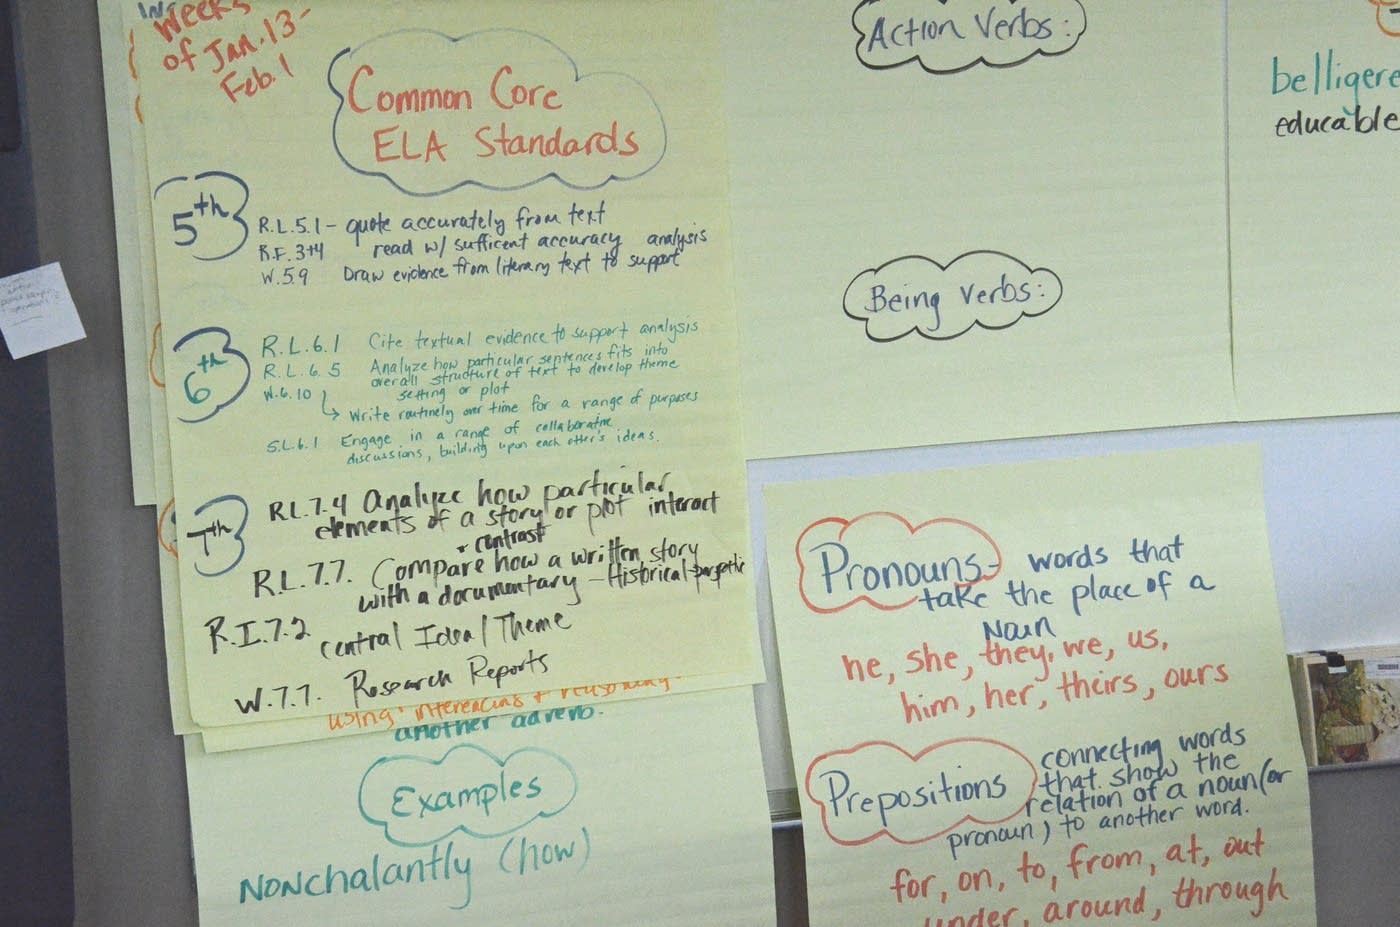 Weeks
of Jan. 13-
Feb. 1
Common Core
ELA Standards
5th
R.L.5.1- quote accurately from text
R.F. 3+4 read w/ sufficent accuracy analysis
W.5.9 Draw evidence from literary text to support
6th
R.L.6.1 Cite textual evidence to support analysis
R.L.6.5 Analyze how particular sentences fits into
overall structure of text to develop theme
setting or plot
W.6.10
Write routinely over time for a range of purposes
S.L.6.1 Engage in a range of collaborative
discussions, building upon each other's ideas.
7th
R.L.7.4 Analyze how particular
elements of a story or plot interact
+ contrast
R.L.7.7. Compare how a written story
with a documentary - Historical
R.I.7.2 central Idea/Theme
W.7.7. Research Reports
using inferencing + reasoning
another adverb.
Examples
Nonchalantly (how)
Action Verbs:
Being Verbs:
bellige
educable
Pronouns- words that
take the place of a
Noun
he, she, they, we, us,
him, her, theirs, ours
Prepositions
connecting words
that show the
relation of a noun (or
pronoun) to another word.
for, on, to, from, at, out
under, around, through